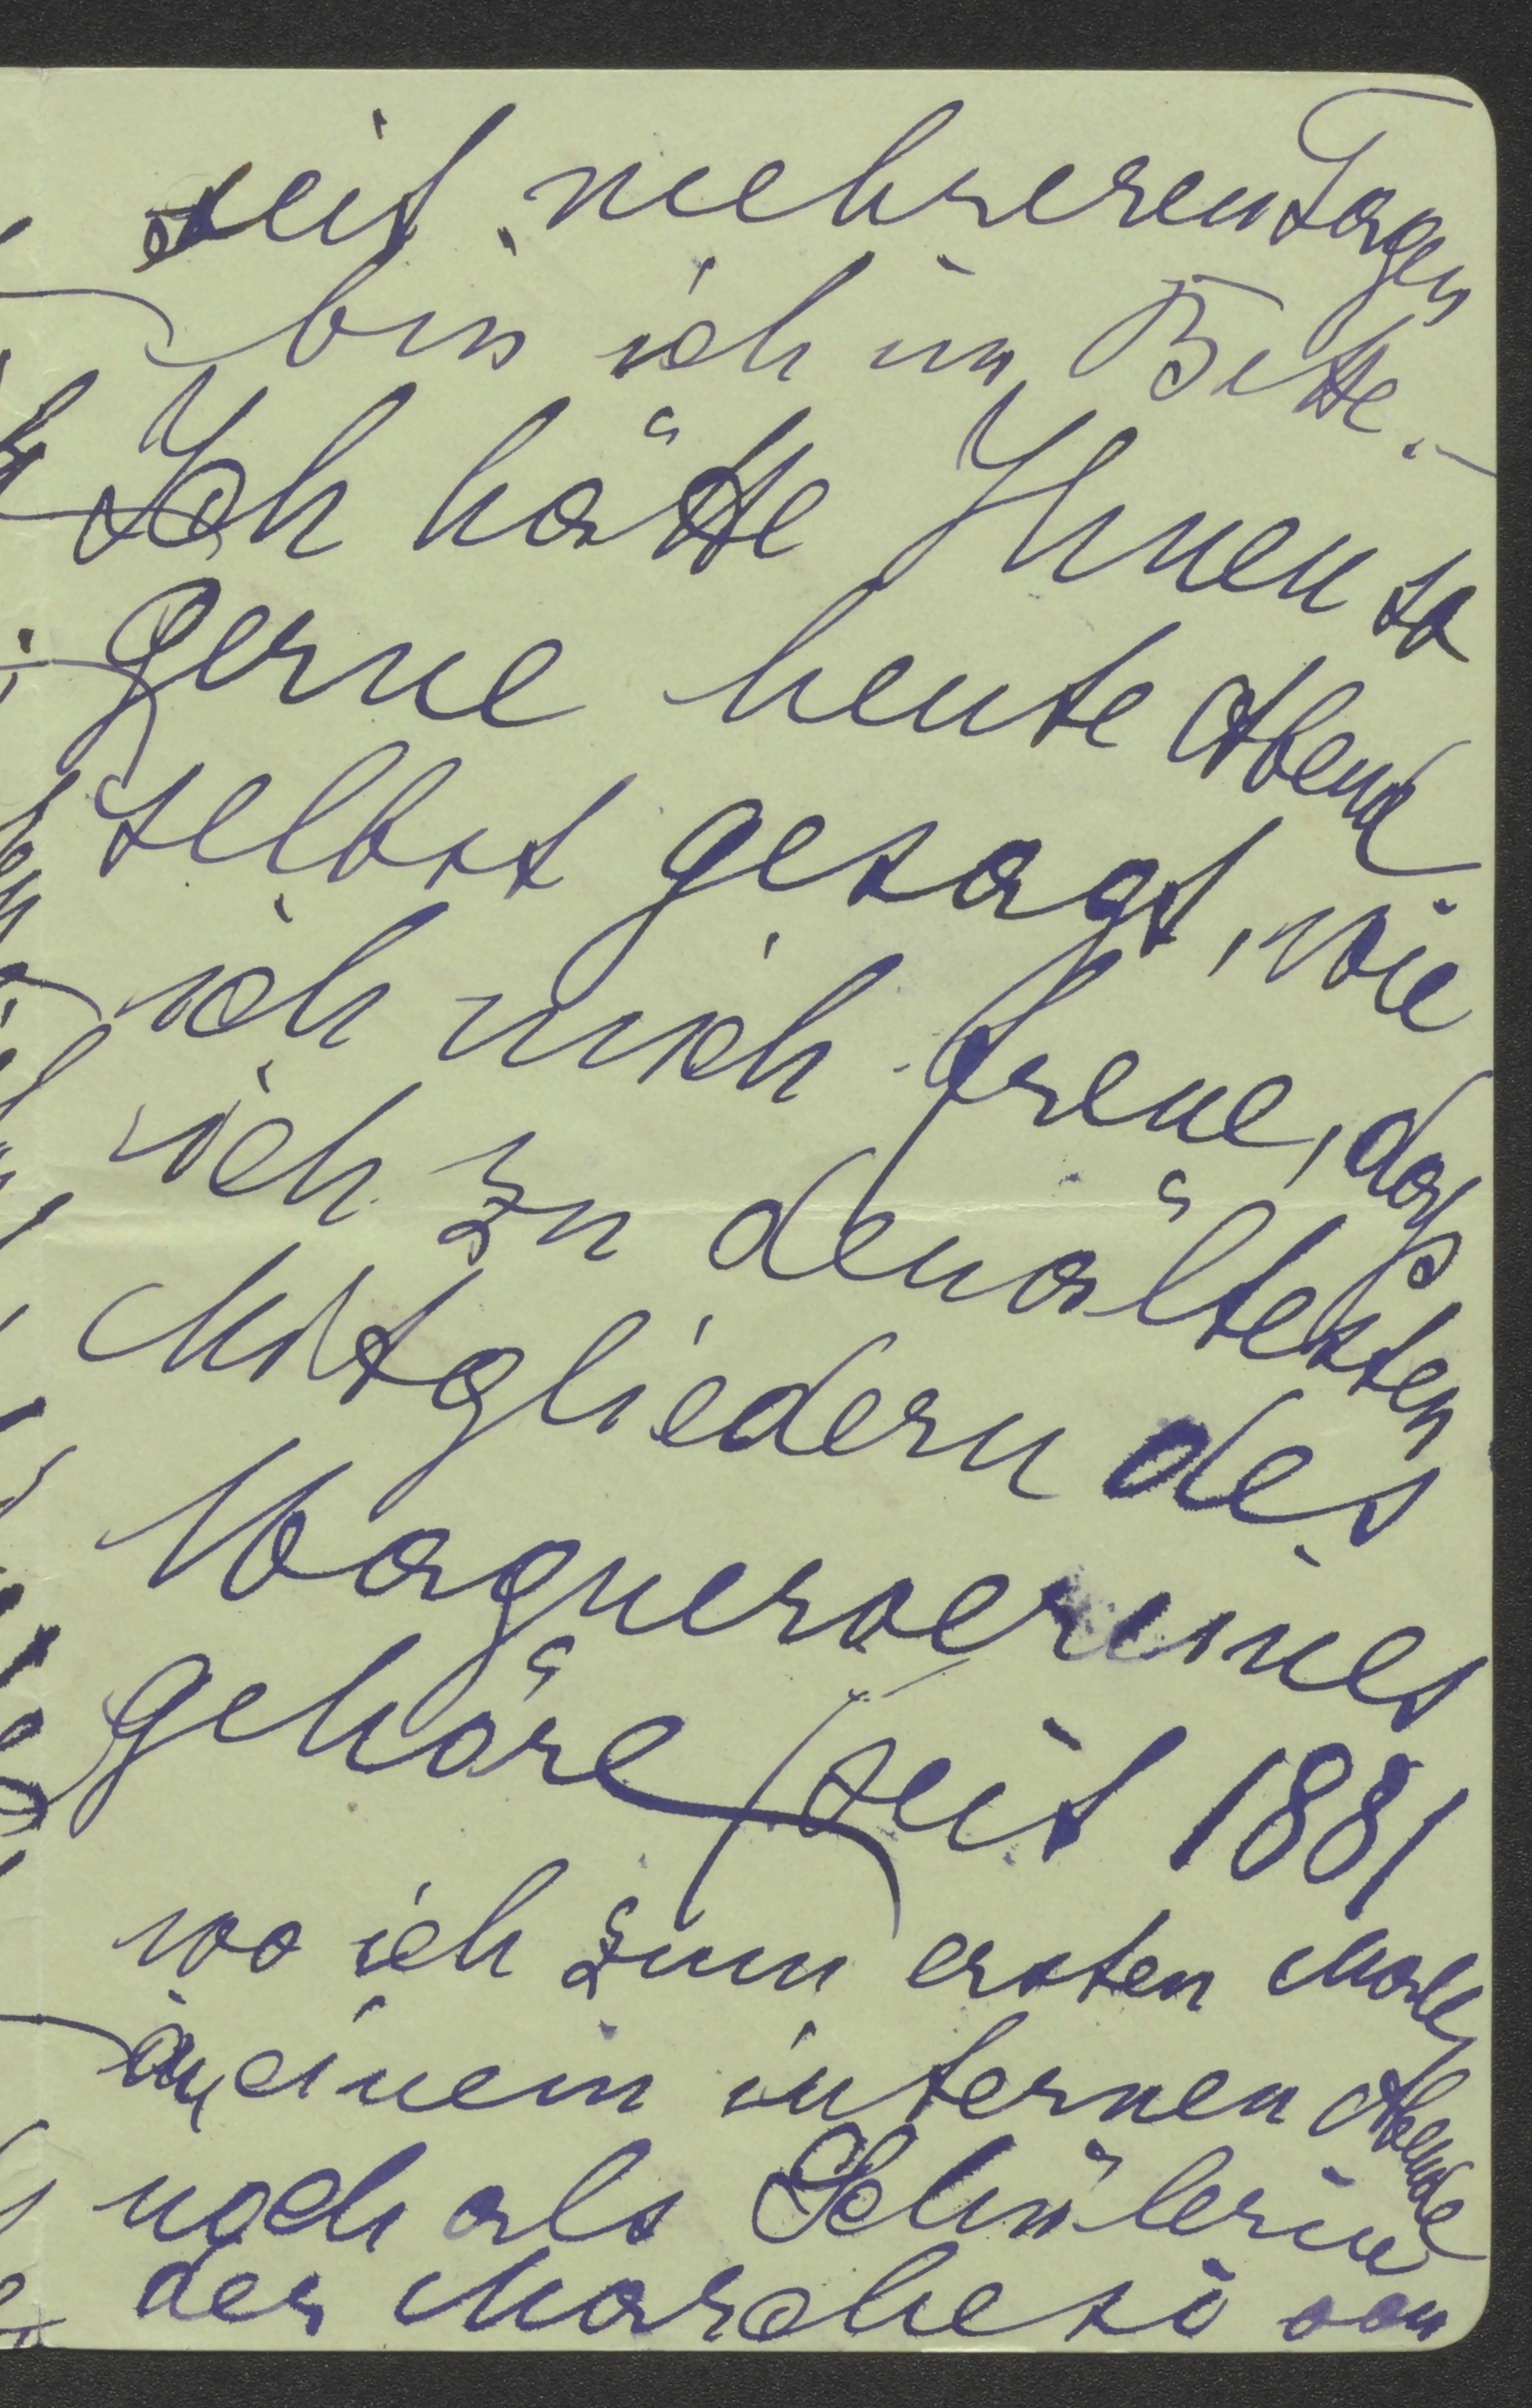 seit mehreren Tagen
bin ich im Bette. –
Ich hätte Ihnen so
gerne heute Abend
selbst gesagt, wie
ich mich freue, daß
ich zu den ältesten
Mitgliedern des
Wagnervereines
gehöre (seit 1881
wo ich zum ersten Male
in einem internen Abende
noch als Schülerin
der Marchesi von